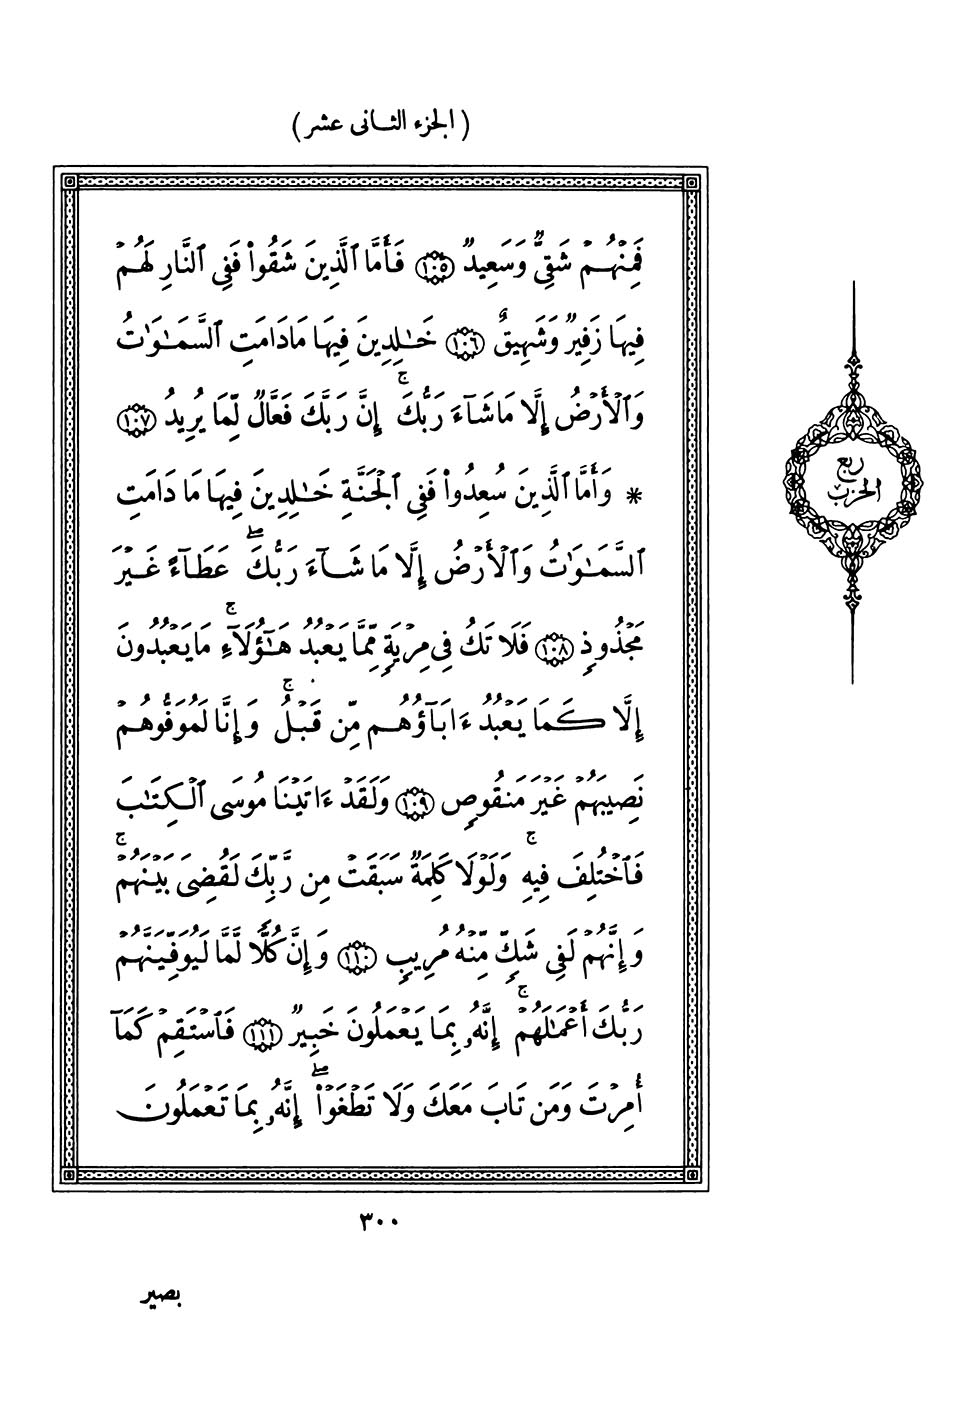 ( الجزء الثانى عشر )
فَمِنْهُمْ شَقِىٌّ وَسَعِيدٌ ١٠٥ فَأَمَّا ٱلَّذِينَ شَقُوا۟ فَفِى ٱلنَّارِ لَهُمْ
فِيهَا زَفِيرٌ وَشَهِيقٌ ١٠٦ خَـٰلِدِينَ فِيهَا مَا دَامَتِ ٱلسَّمَـٰوَٰتُ
وَٱلْأَرْضُ إِلَّا مَا شَآءَ رَبُّكَ ۚ إِنَّ رَبَّكَ فَعَّالٌ لِّمَا يُرِيدُ ١٠٧
* وَأَمَّا ٱلَّذِينَ سُعِدُوا۟ فَفِى ٱلْجَنَّةِ خَـٰلِدِينَ فِيهَا مَا دَامَتِ
ٱلسَّمَـٰوَٰتُ وَٱلْأَرْضُ إِلَّا مَا شَآءَ رَبُّكَ ۖ عَطَآءً غَيْرَ
مَجْذُوذٍ ١٠٨ فَلَا تَكُ فِى مِرْيَةٍ مِّمَّا يَعْبُدُ هَـٰٓؤُلَآءِ ۚ مَا يَعْبُدُونَ
إِلَّا كَمَا يَعْبُدُ ءَابَآؤُهُم مِّن قَبْلُ ۚ وَإِنَّا لَمُوَفُّوهُمْ
نَصِيبَهُمْ غَيْرَ مَنقُوصٍ ١٠٩ وَلَقَدْ ءَاتَيْنَا مُوسَى ٱلْكِتَـٰبَ
فَٱخْتُلِفَ فِيهِ ۚ وَلَوْلَا كَلِمَةٌ سَبَقَتْ مِن رَّبِّكَ لَقُضِىَ بَيْنَهُمْ ۚ
وَإِنَّهُمْ لَفِى شَكٍّ مِّنْهُ مُرِيبٍ ١١٠ وَإِنَّ كُلًّا لَّمَّا لَيُوَفِّيَنَّهُمْ
رَبُّكَ أَعْمَـٰلَهُمْ ۚ إِنَّهُۥ بِمَا يَعْمَلُونَ خَبِيرٌ ١١١ فَٱسْتَقِمْ كَمَآ
أُمِرْتَ وَمَن تَابَ مَعَكَ وَلَا تَطْغَوْا۟ ۖ إِنَّهُۥ بِمَا تَعْمَلُونَ
ربع
الحزب
٣٠٠
بصير